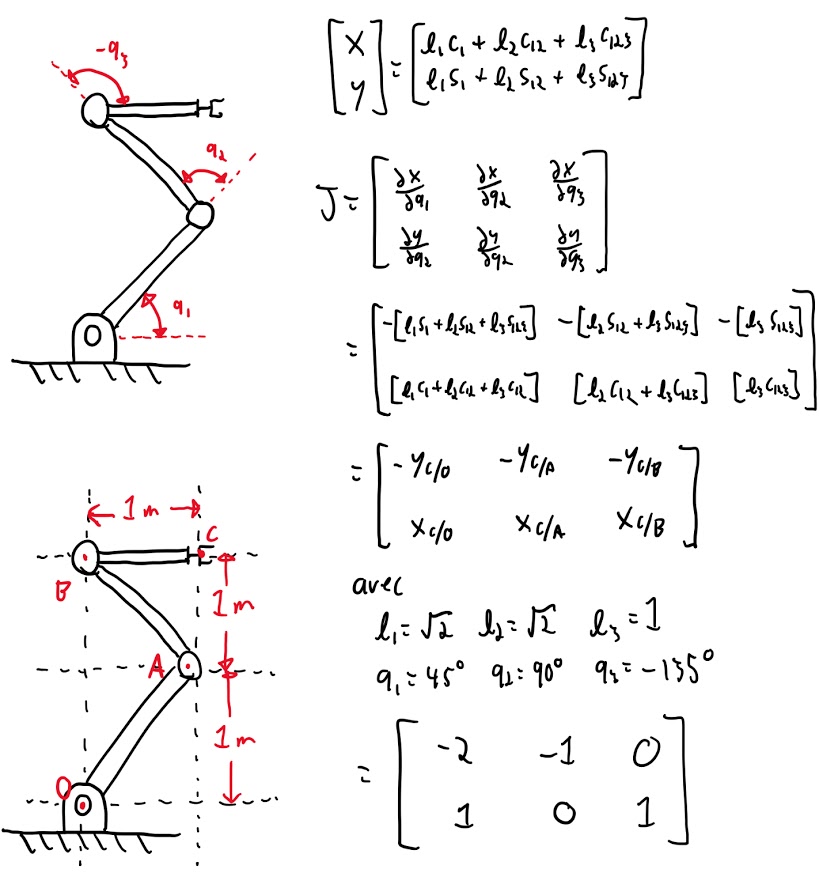 -q₃
q₂
q₁
[x y] = [l₁c₁ + l₂c₁₂ + l₃c₁₂₃
l₁s₁ + l₂s₁₂ + l₃s₁₂₃]
J = [∂x/∂q₁ ∂x/∂q₂ ∂x/∂q₃
∂y/∂q₂ ∂y/∂q₂ ∂y/∂q₃]
= [-[l₁s₁+l₂s₁₂+l₃s₁₂₃] -[l₂s₁₂+l₃s₁₂₃] -[l₃s₁₂₃]
[l₁c₁+l₂c₁₂+l₃c₁₂] [l₂c₁₂+l₃c₁₂₃] [l₃c₁₂₃]]
= [-y_C/O -y_C/A -y_C/B
x_C/O x_C/A x_C/B]
avec
l₁=√2 l₂=√2 l₃=1
q₁=45° q₂=90° q₃=-135°
= [-2 -1 0
1 0 1]
1 m
C
B
1 m
A
1 m
O